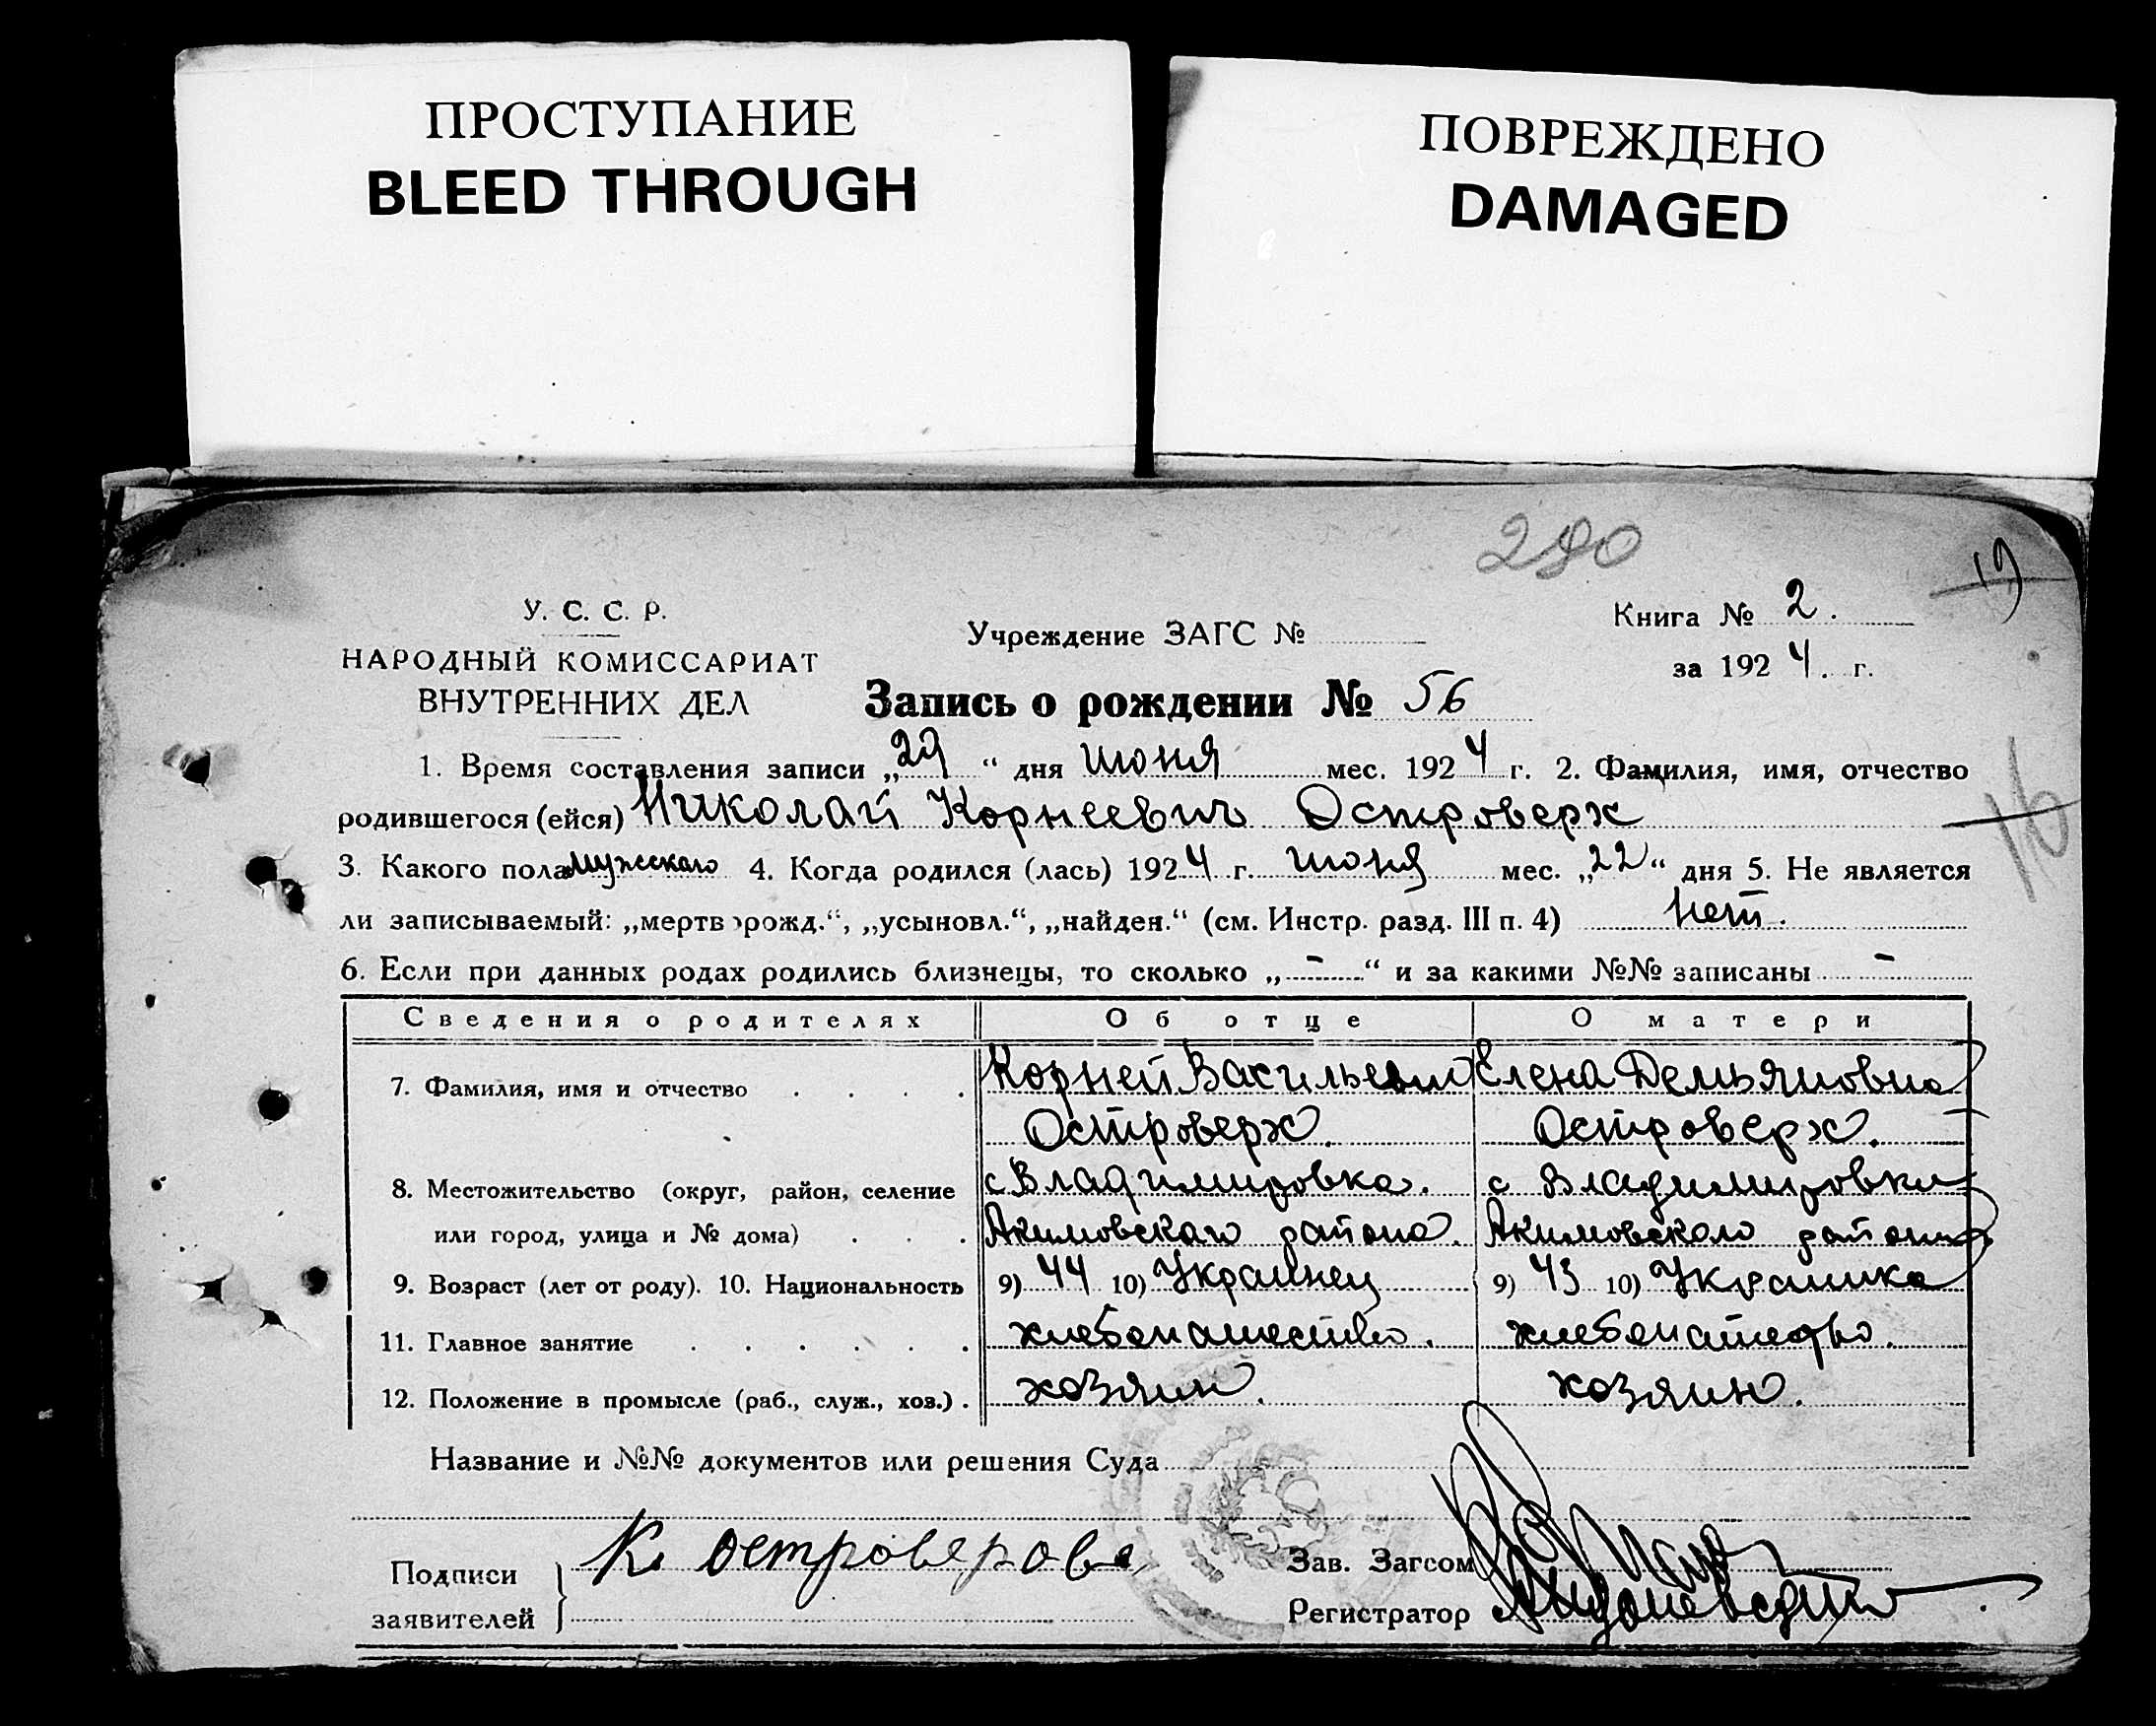 ПРОСТУПАНИЕ
BLEED THROUGH
ПОВРЕЖДЕНО
DAMAGED
280
19
У. С. С. Р.
НАРОДНЫЙ КОМИССАРИАТ
ВНУТРЕННИХ ДЕЛ
Учреждение ЗАГС №
Книга № 2.
за 1924. г.
Запись о рождении № 56
1. Время составления записи „29“ дня июня мес. 1924 г. 2. Фамилия, имя, отчество
родившегося (ейся) Николай Корнеевич Островерх
16
3. Какого пола мужского 4. Когда родился (лась) 1924 г. июня мес. „22“ дня 5. Не является
ли записываемый: „мертворожд.“, „усыновл.“, „найден.“ (см. Инстр. разд. III п. 4) нет.
6. Если при данных родах родились близнецы, то сколько „-“ и за какими №№ записаны -
Сведения о родителях Об отце О матери
7. Фамилия, имя и отчество . . . . Корней Васильевич Елена Демьяновна
Островерх. Островерх.
8. Местожительство (округ, район, селение с Владимировка. с Владимировки
или город, улица и № дома) . . . Акимовскаго района. Акимовского района
9. Возраст (лет от роду). 10. Национальность 9) 44 10) Украинец 9) 43 10) Украинка
11. Главное занятие . . . . . . хлебопашество. хлебопашество.
12. Положение в промысле (раб., служ., хоз.) . хозяин. хозяин.
Название и №№ документов или решения Суда
Подписи
заявителей
К островерхов
Зав. Загсом
Регистратор